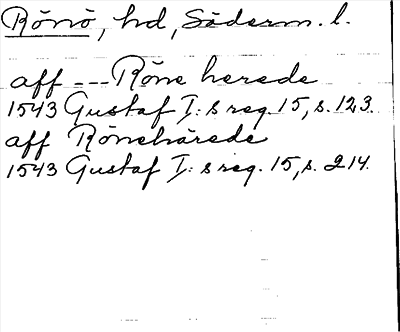 Rönö, hd, Söderm. l.
aff --- Röne herede
1543 Gustaf I: s reg. 15, s. 123.
aff Rönehärede
1543 Gustaf I: s reg. 15, s. 214.